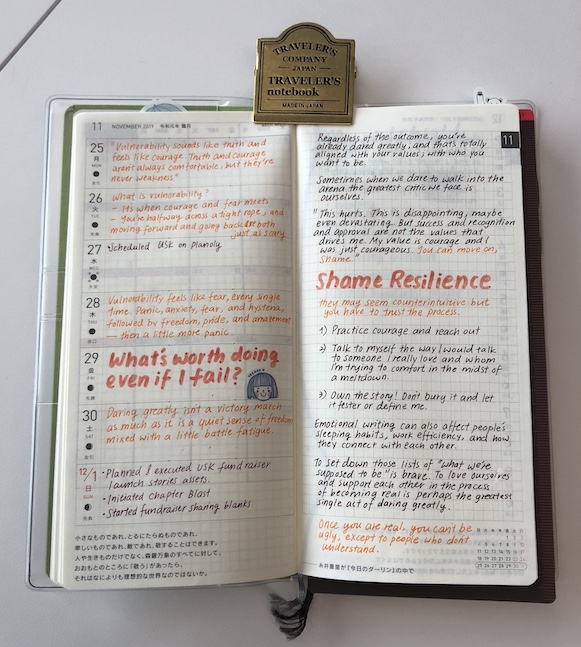 TRAVELER'S
COMPANY
JAPAN
TRAVELER'S
notebook
MADE IN JAPAN
11 NOVEMBER 2019 令和元年 霜月
25
月
MON
"Vulnerability sounds like truth and
feels like courage. Truth and courage
aren't always comfortable, but they're
never weakness"
26
火
TUE
What is vulnerability?
- It's when courage and fear meets
- You're halfway across a tight rope, and
moving forward and going back are both
just as scary
27
水
WED
•Scheduled USK on planoly
28
木
THU
Vulnerability feels like fear, every single
time. Panic, anxiety, fear, and hysteria,
followed by freedom, pride, and amazement
— then a little more panic
29
金
FRI
What's worth doing
even if I fail?
30
土
SAT
Daring greatly isn't a victory march
as much as it is a quiet sense of freedom
mixed with a little battle fatigue.
12/1
日
SUN
•Planned & executed USK fundraiser
launch stories assets.
•Initiated Chapter Blast
•Started fundraiser sharing blanks
小さなものであれ、とるにたらぬものであれ、
卑しいものであれ、敵であれ、敬することはできます。
人や生きものだけでなく、森羅万象のすべてに対して、
おおもとのところに「敬う」があったら、
それはなによりも理想的な世界なのではないか。
11
Regardless of the outcome, you've
already dared greatly, and that's totally
aligned with your values; with who you
want to be.
Sometimes when we dare to walk into the
arena the greatest critic we face is
ourselves.
"This hurts. This is disappointing, maybe
even devastating. But success and recognition
and approval are not the values that
drives me. My value is courage and I
was just courageous. You can move on,
shame."
Shame Resilience
they may seem counterintuitive but
you have to trust the process.
1) Practice courage and reach out
2) Talk to myself the way I would talk
to someone I really love and whom
I'm trying to comfort in the midst of
a meltdown.
3) Own the story! Don't bury it and let
it fester or define me.
Emotional writing can also affect people's
sleeping habits, work efficiency, and how
they connect with each other.
To set down those lists of "what we're
supposed to be" is brave. To love ourselves
and support each other in the process
of becoming real is perhaps the greatest
single act of daring greatly.
Once you are real, you can't be
ugly, except to people who don't
understand.
糸井重里が『今日のダーリン』の中で